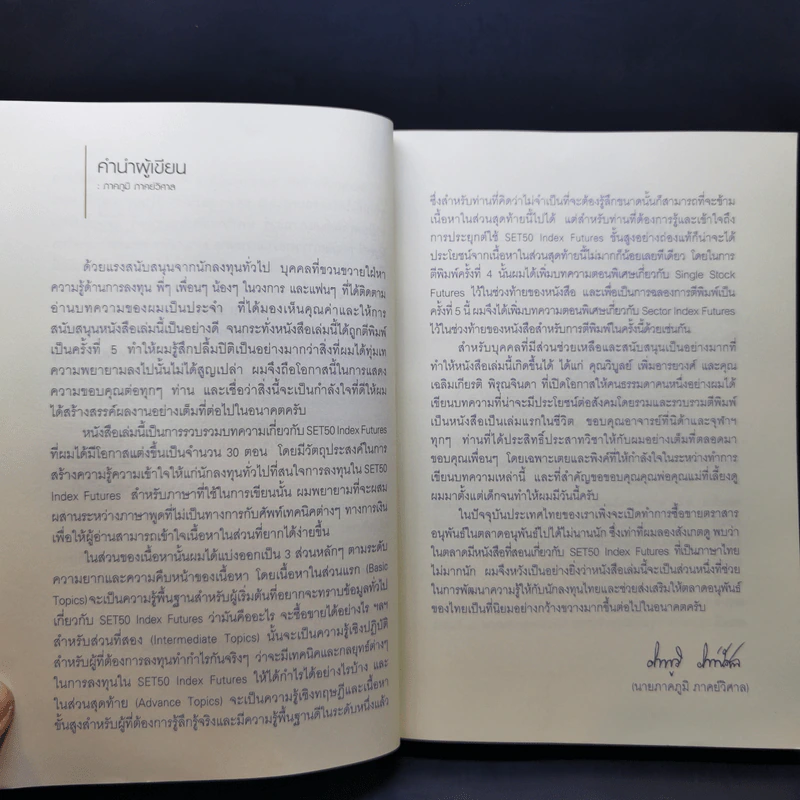 คำนำผู้เขียน
: ภาคภูมิ ภาคย์วิศาล
ด้วยแรงสนับสนุนจากนักลงทุนทั่วไป บุคคลที่ขวนขวายใฝ่หา
ความรู้ด้านการลงทุน พี่ๆ เพื่อนๆ น้องๆ ในวงการ และแฟนๆ ที่ได้ติดตาม
อ่านบทความของผมเป็นประจำ ที่ได้มองเห็นคุณค่าและให้การ
สนับสนุนหนังสือเล่มนี้เป็นอย่างดี จนกระทั่งหนังสือเล่มนี้ได้ถูกตีพิมพ์
เป็นครั้งที่ 5 ทำให้ผมรู้สึกปลื้มปิติเป็นอย่างมากว่าสิ่งที่ผมได้ทุ่มเท
ความพยายามลงไปนั้นไม่ได้สูญเปล่า ผมจึงถือโอกาสนี้ในการแสดง
ความขอบคุณต่อทุกๆ ท่าน และเชื่อว่าสิ่งนี้จะเป็นกำลังใจที่ดีให้ผม
ได้สร้างสรรค์ผลงานอย่างเต็มที่ต่อไปในอนาคตครับ
หนังสือเล่มนี้เป็นการรวบรวมบทความเกี่ยวกับ SET50 Index Futures
ที่ผมได้มีโอกาสแต่งขึ้นเป็นจำนวน 30 ตอน โดยมีวัตถุประสงค์ในการ
สร้างความรู้ความเข้าใจให้แก่นักลงทุนทั่วไปที่สนใจการลงทุนใน SET50
Index Futures สำหรับภาษาที่ใช้ในการเขียนนั้น ผมพยายามที่จะผสม
ผสานระหว่างภาษาพูดที่ไม่เป็นทางการกับศัพท์เทคนิคต่างๆ ทางการเงิน
เพื่อให้ผู้อ่านสามารถเข้าใจเนื้อหาในส่วนที่ยากได้ง่ายขึ้น
ในส่วนของเนื้อหานั้นผมได้แบ่งออกเป็น 3 ส่วนหลักๆ ตามระดับ
ความยากและความคืบหน้าของเนื้อหา โดยเนื้อหาในส่วนแรก (Basic
Topics)จะเป็นความรู้พื้นฐานสำหรับผู้เริ่มต้นที่อยากจะทราบข้อมูลทั่วไป
เกี่ยวกับ SET50 Index Futures ว่ามันคืออะไร จะซื้อขายได้อย่างไร ฯลฯ
สำหรับส่วนที่สอง (Intermediate Topics) นั้นจะเป็นความรู้เชิงปฏิบัติ
สำหรับผู้ที่ต้องการลงทุนทำกำไรกันจริงๆ ว่าจะมีเทคนิคและกลยุทธ์ต่างๆ
ในการลงทุนใน SET50 Index Futures ให้ได้กำไรได้อย่างไรบ้าง และ
ในส่วนสุดท้าย (Advance Topics) จะเป็นความรู้เชิงทฤษฎีและเนื้อหา
ขั้นสูงสำหรับผู้ที่ต้องการรู้ลึกรู้จริงและมีความรู้พื้นฐานดีในระดับหนึ่งแล้ว
ซึ่งสำหรับท่านที่คิดว่าไม่จำเป็นที่จะต้องรู้ลึกขนาดนั้นก็สามารถที่จะข้าม
เนื้อหาในส่วนสุดท้ายนี้ไปได้ แต่สำหรับท่านที่ต้องการรู้และเข้าใจถึง
การประยุกต์ใช้ SET50 Index Futures ขั้นสูงอย่างถ่องแท้ก็น่าจะได้
ประโยชน์จากเนื้อหาในส่วนสุดท้ายนี้ไม่มากก็น้อยเลยทีเดียว โดยในการ
ตีพิมพ์ครั้งที่ 4 นั้นผมได้เพิ่มบทความตอนพิเศษเกี่ยวกับ Single Stock
Futures ไว้ในช่วงท้ายของหนังสือ และเพื่อเป็นการฉลองการตีพิมพ์เป็น
ครั้งที่ 5 นี้ ผมจึงได้เพิ่มบทความตอนพิเศษเกี่ยวกับ Sector Index Futures
ไว้ในช่วงท้ายของหนังสือสำหรับการตีพิมพ์ในครั้งนี้ด้วยเช่นกัน
สำหรับบุคคลที่มีส่วนช่วยเหลือและสนับสนุนเป็นอย่างมากที่
ทำให้หนังสือเล่มนี้เกิดขึ้นได้ ได้แก่ คุณวิบูลย์ เพิ่มอารยวงศ์ และคุณ
เฉลิมเกียรติ พิรุณจินดา ที่เปิดโอกาสให้คนธรรมดาคนหนึ่งอย่างผมได้
เขียนบทความที่น่าจะมีประโยชน์ต่อสังคมโดยรวมและรวบรวมตีพิมพ์
เป็นหนังสือเป็นเล่มแรกในชีวิต ขอบคุณอาจารย์ที่นิด้าและจุฬาฯ
ทุกๆ ท่านที่ได้ประสิทธิ์ประสาทวิชาให้กับผมอย่างเต็มที่ตลอดมา
ขอบคุณเพื่อนๆ โดยเฉพาะเตยและพิงค์ที่ให้กำลังใจในระหว่างทำการ
เขียนบทความเหล่านี้ และที่สำคัญขอขอบคุณคุณพ่อคุณแม่ที่เลี้ยงดู
ผมมาตั้งแต่เด็กจนทำให้ผมมีวันนี้ครับ
ในปัจจุบันประเทศไทยของเราเพิ่งจะเปิดทำการซื้อขายตราสาร
อนุพันธ์ในตลาดอนุพันธ์ไปได้ไม่นานนัก ซึ่งเท่าที่ผมลองสังเกตดู พบว่า
ในตลาดมีหนังสือที่สอนเกี่ยวกับ SET50 Index Futures ที่เป็นภาษาไทย
ไม่มากนัก ผมจึงหวังเป็นอย่างยิ่งว่าหนังสือเล่มนี้จะเป็นส่วนหนึ่งที่ช่วย
ในการพัฒนาความรู้ให้กับนักลงทุนไทยและช่วยส่งเสริมให้ตลาดอนุพันธ์
ของไทยเป็นที่นิยมอย่างกว้างขวางมากขึ้นต่อไปในอนาคตครับ
(นายภาคภูมิ ภาคย์วิศาล)